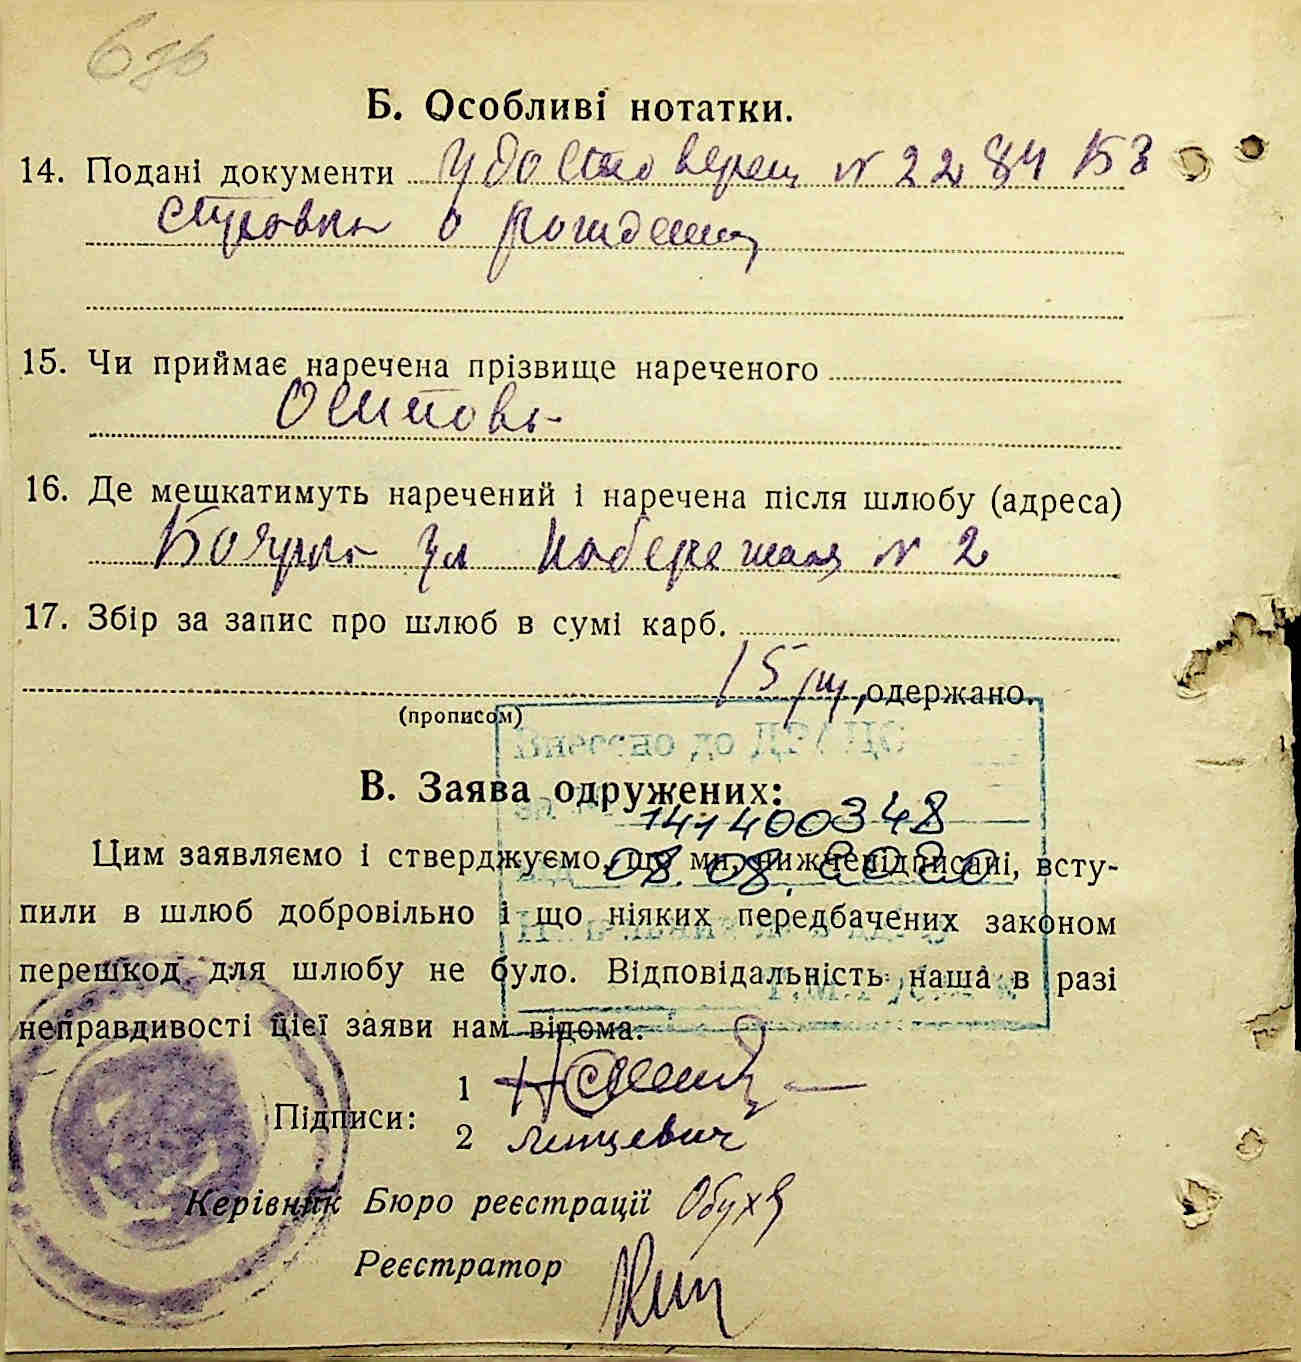 Б. Особливі нотатки.
14. Подані документи удостоверен N 2284153
справка о рождении
15. Чи приймає наречена прізвище нареченого
Осипов
16. Де мешкатимуть наречений і наречена після шлюбу (адреса)
ул Набережная N 2
17. Збір за запис про шлюб в сумі карб.
15 одержано.
(прописом)
В. Заява одружених:
141400348
Цим заявляємо і стверджуємо, що ми, нижчепідписані, всту-
08.08.2020
пили в шлюб добровільно і що ніяких передбачених законом
перешкод для шлюбу не було. Відповідальність наша в разі
неправдивості цієї заяви нам відома.
Підписи: 1
2 Линцевич
Керівник Бюро реєстрації
Реєстратор